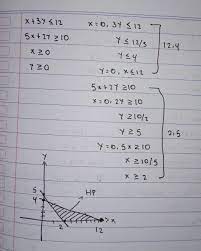 x+3y ≤ 12
5x+2y ≥ 10
x ≥ 0
y ≥ 0
x=0, 3y ≤ 12
y ≤ 12/3
y ≤ 4
y=0, x ≤ 12
12,4
5x+2y ≥ 10
x=0, 2y ≥ 10
y ≥ 10/2
y ≥ 5
y=0, 5x ≥ 10
x ≥ 10/5
x ≥ 2
2,5
y
5
4
HP
x
2
12